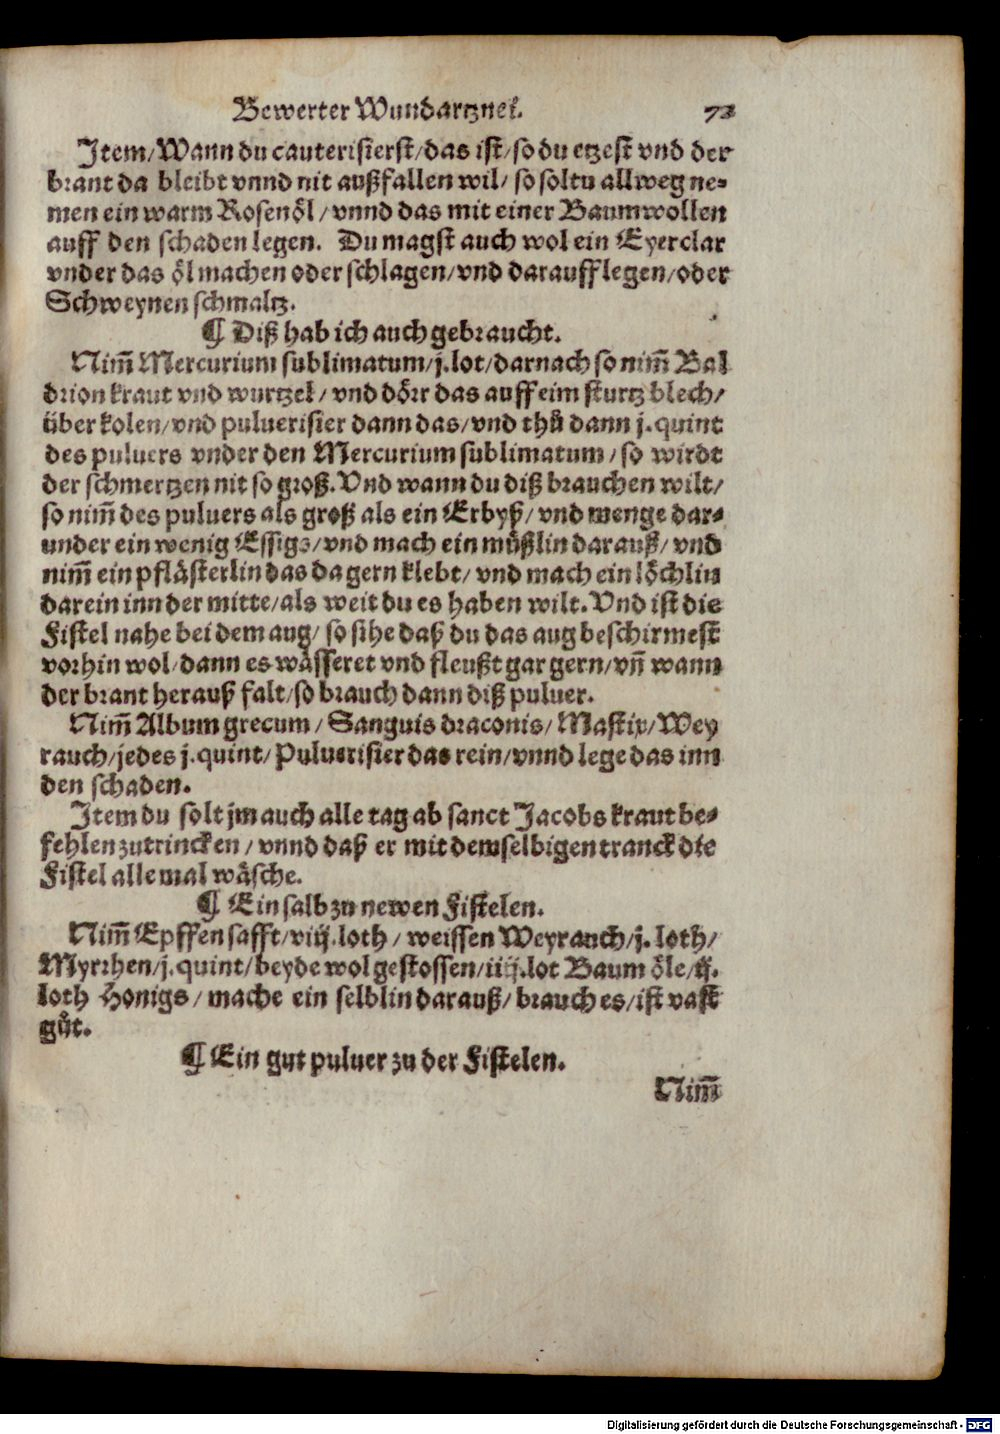 Bewerter Wundartznei. 73
Item/Wann du cauterisierst/das ist/so du etzest vnd der
brant da bleibt vnnd nit außfallen wil/ so soltu allweg ne-
men ein warm Rosenöl/vnnd das mit einer Baumwollen
auff den schaden legen. Du magst auch wol ein Eyerclar
vnder das öl machen oder schlagen/vnd darauff legen/oder
Schweynen schmaltz.
¶ Diß hab ich auch gebraucht.
Nim̃ Mercurium sublimatum/j.lot/darnach so nim̃ Bal
drion kraut vnd wurtzel/ vnd dörr das auff eim sturtz blech/
über kolen/vnd puluerisier dann das/vnd thů dann j.quint
des puluers vnder den Mercurium sublimatum/so wirdt
der schmertzen nit so groß. Vnd wann du diß brauchen wilt/
so nim̃ des puluers als groß als ein Erbyß/vnd menge dar-
under ein wenig Essigs/vnd mach ein můßlin darauß/vnd
nim̃ ein pflästerlin das da gern klebt/ vnd mach ein löchlin
darein inn der mitte/als weit du es haben wilt. Vnd ist die
Fistel nahe bei dem aug/ so sihe daß du das aug beschirmest
vorhin wol/dann es wässeret vnd fleußt gar gern/vñ wann
der brant herauß falt/so brauch dann diß puluer.
Nim̃ Album grecum/Sanguis draconis/Mastix/Wey
rauch/jedes j.quint/Puluerisier das rein/vnnd lege das inn
den schaden.
Item du solt jm auch alle tag ab sanct Jacobs kraut be-
fehlen zutrincken/vnnd daß er mit demselbigen tranck die
Fistel alle mal wäsche.
¶ Ein salb zu newen Fistelen.
Nim̃ Epffen safft/viij.loth/ weissen Weyrauch/j. loth/
Myrrhen/j.quint/beyde wol gestossen/iiij.lot Baum öle/ij.
loth Honigs/ mache ein selblin darauß/ brauch es/ist vast
gůt.
¶ Ein gut puluer zu der Fistelen.
Nim̃
Digitalisierung gefördert durch die Deutsche Forschungsgemeinschaft - DFG